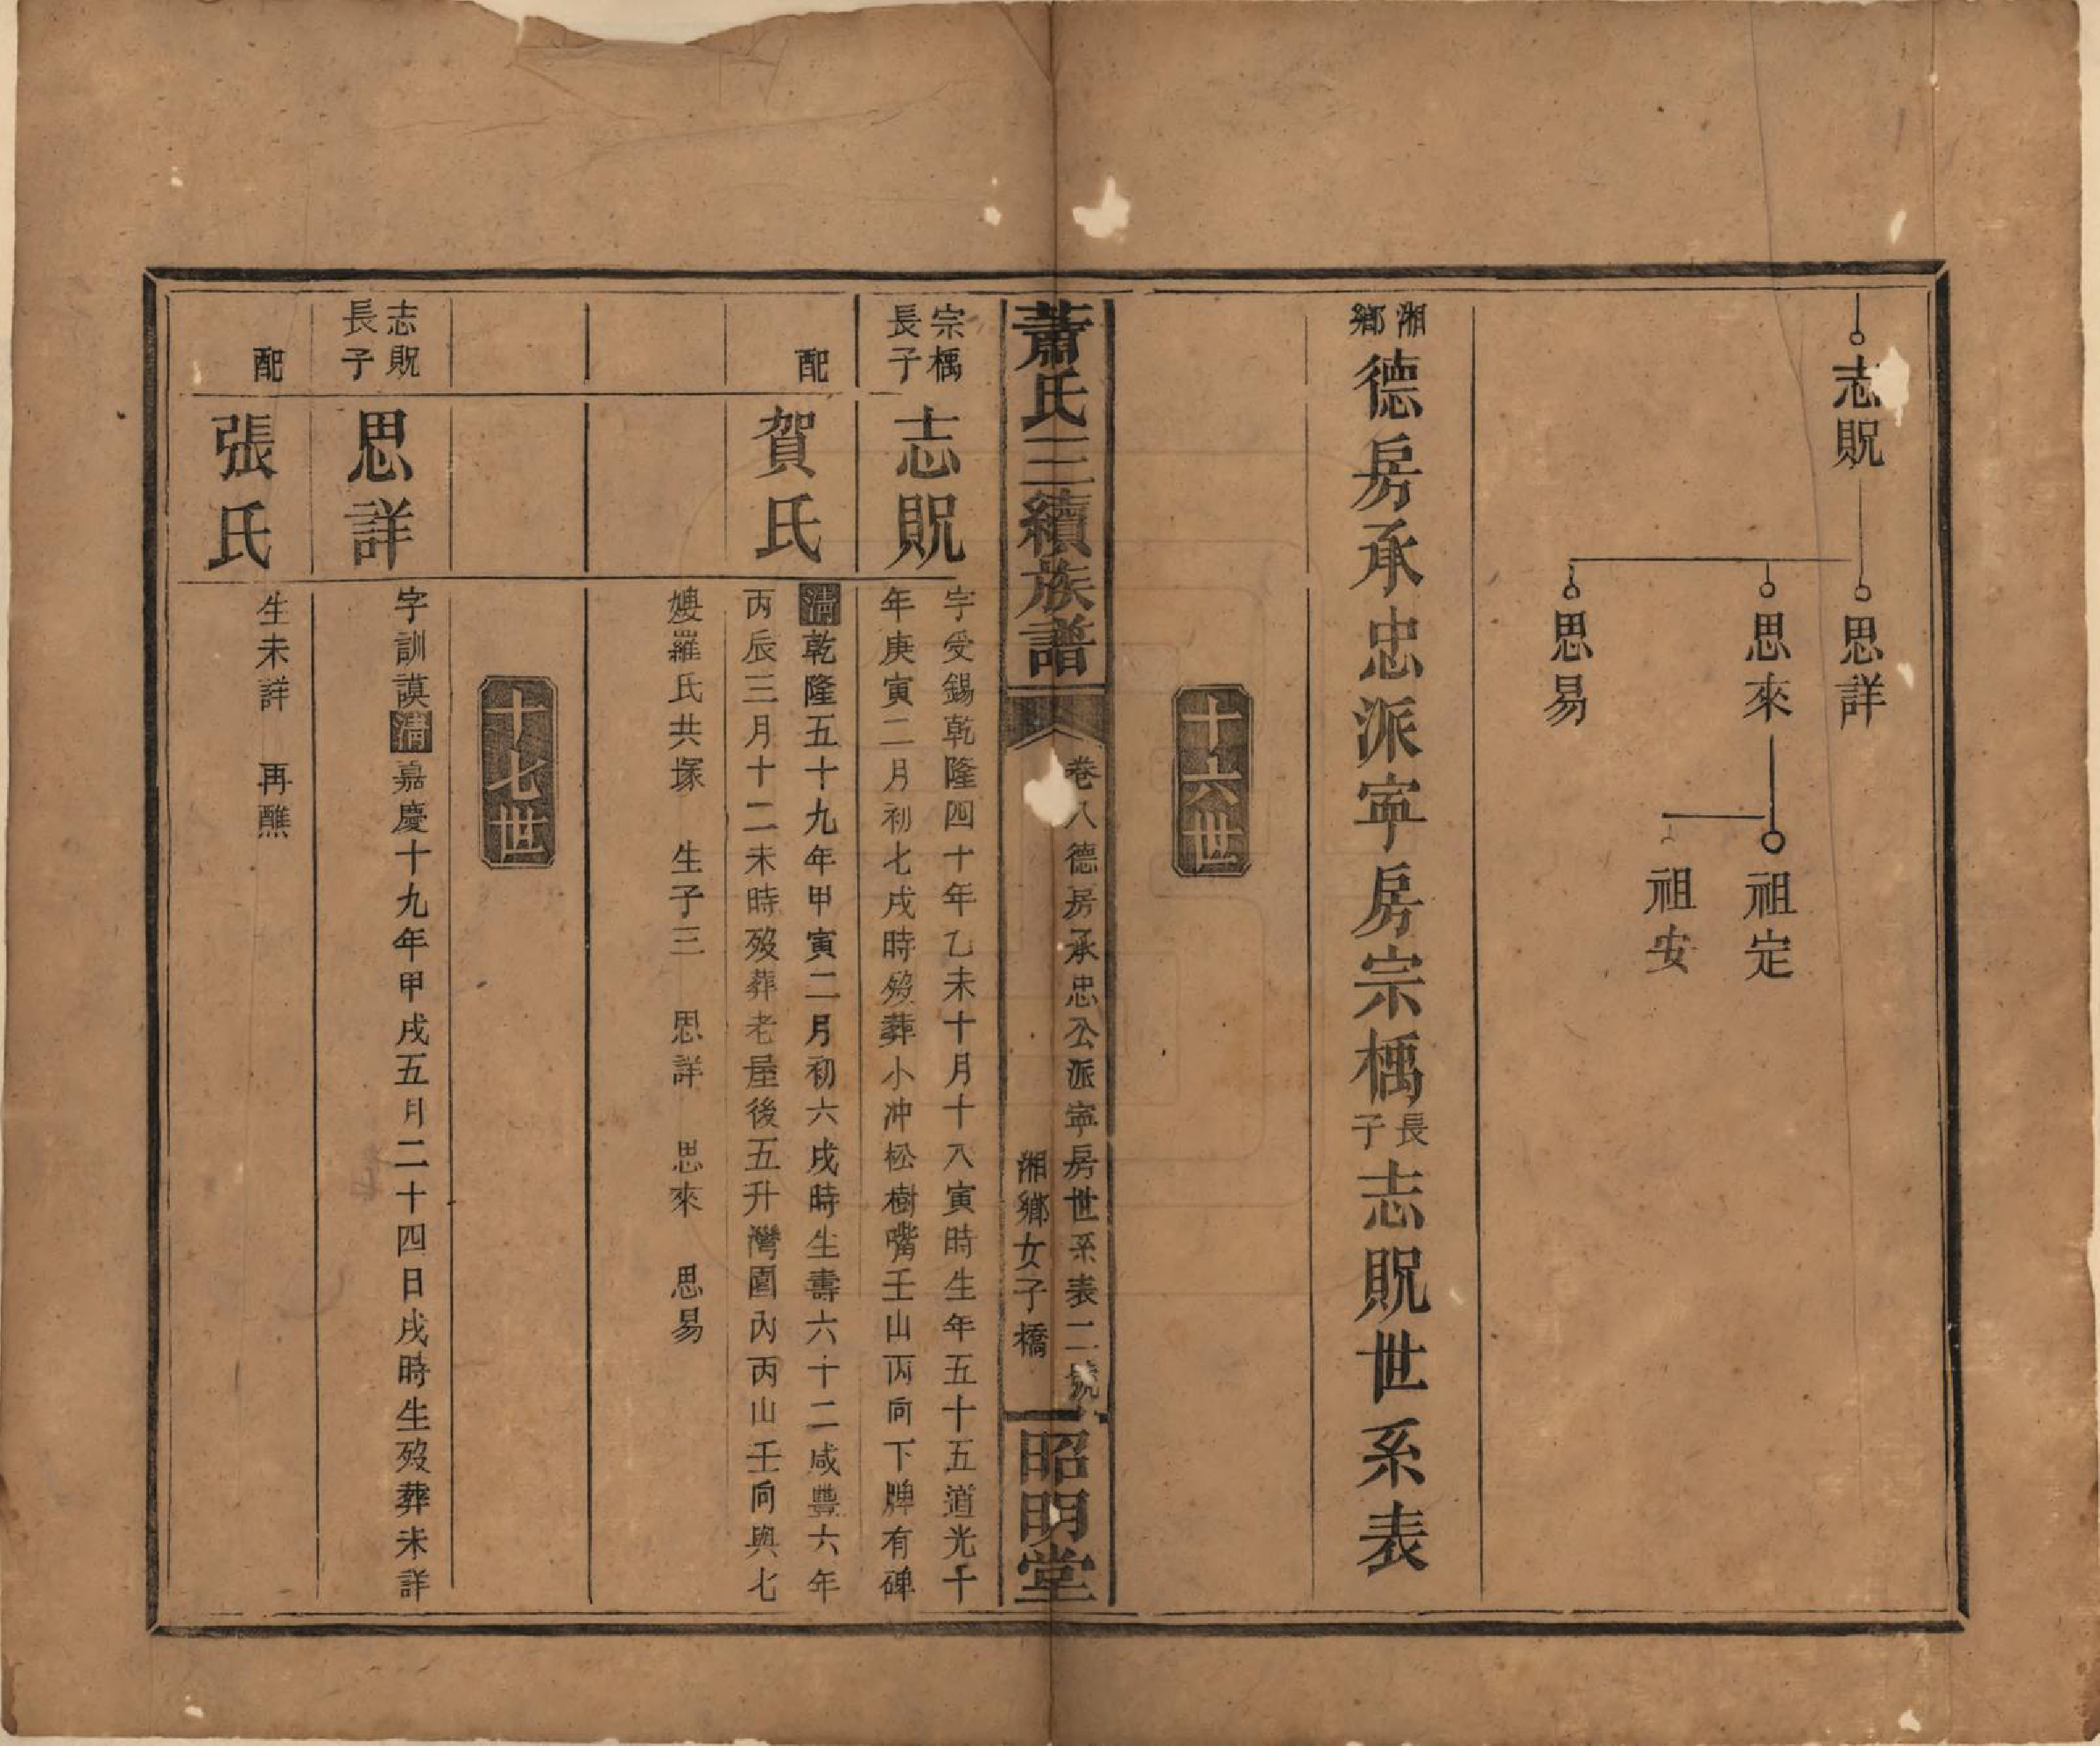 志貺
思詳
思來
思易
祖定
祖安
湘鄉德房承忠派寧房宗楀長子志貺世系表
十六世
蕭氏三續族譜
卷八德房承忠公派寧房世系表二號
湘鄉女子橋
昭明堂
宗楀長子
志貺
字受錫乾隆四十年乙未十月十八寅時生年五十五道光十
年庚寅二月初七戌時歿葬小冲松樹嘴壬山丙向下牌有碑
配
賀氏
清乾隆五十九年甲寅二月初六戌時生壽六十二咸豐六年
丙辰三月十二未時歿葬老屋後五升灣園內丙山壬向與七
嫂羅氏共塚 生子三 思詳 思來 思易
十七世
志貺長子
思詳
字訓謨清嘉慶十九年甲戌五月二十四日戌時生歿葬未詳
配
張氏
生未詳 再醮